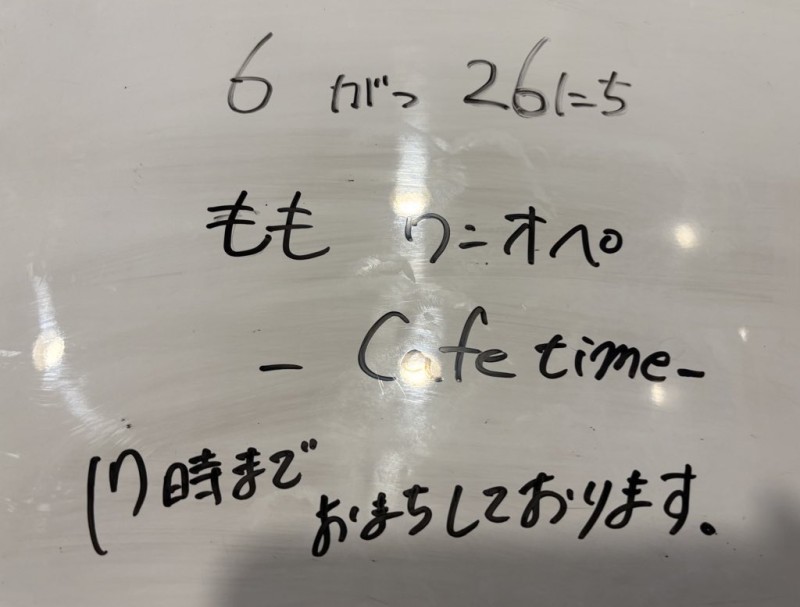 6 がつ 26にち
もも ワニオペ
- Cafe time -
17時まで おまちしております。